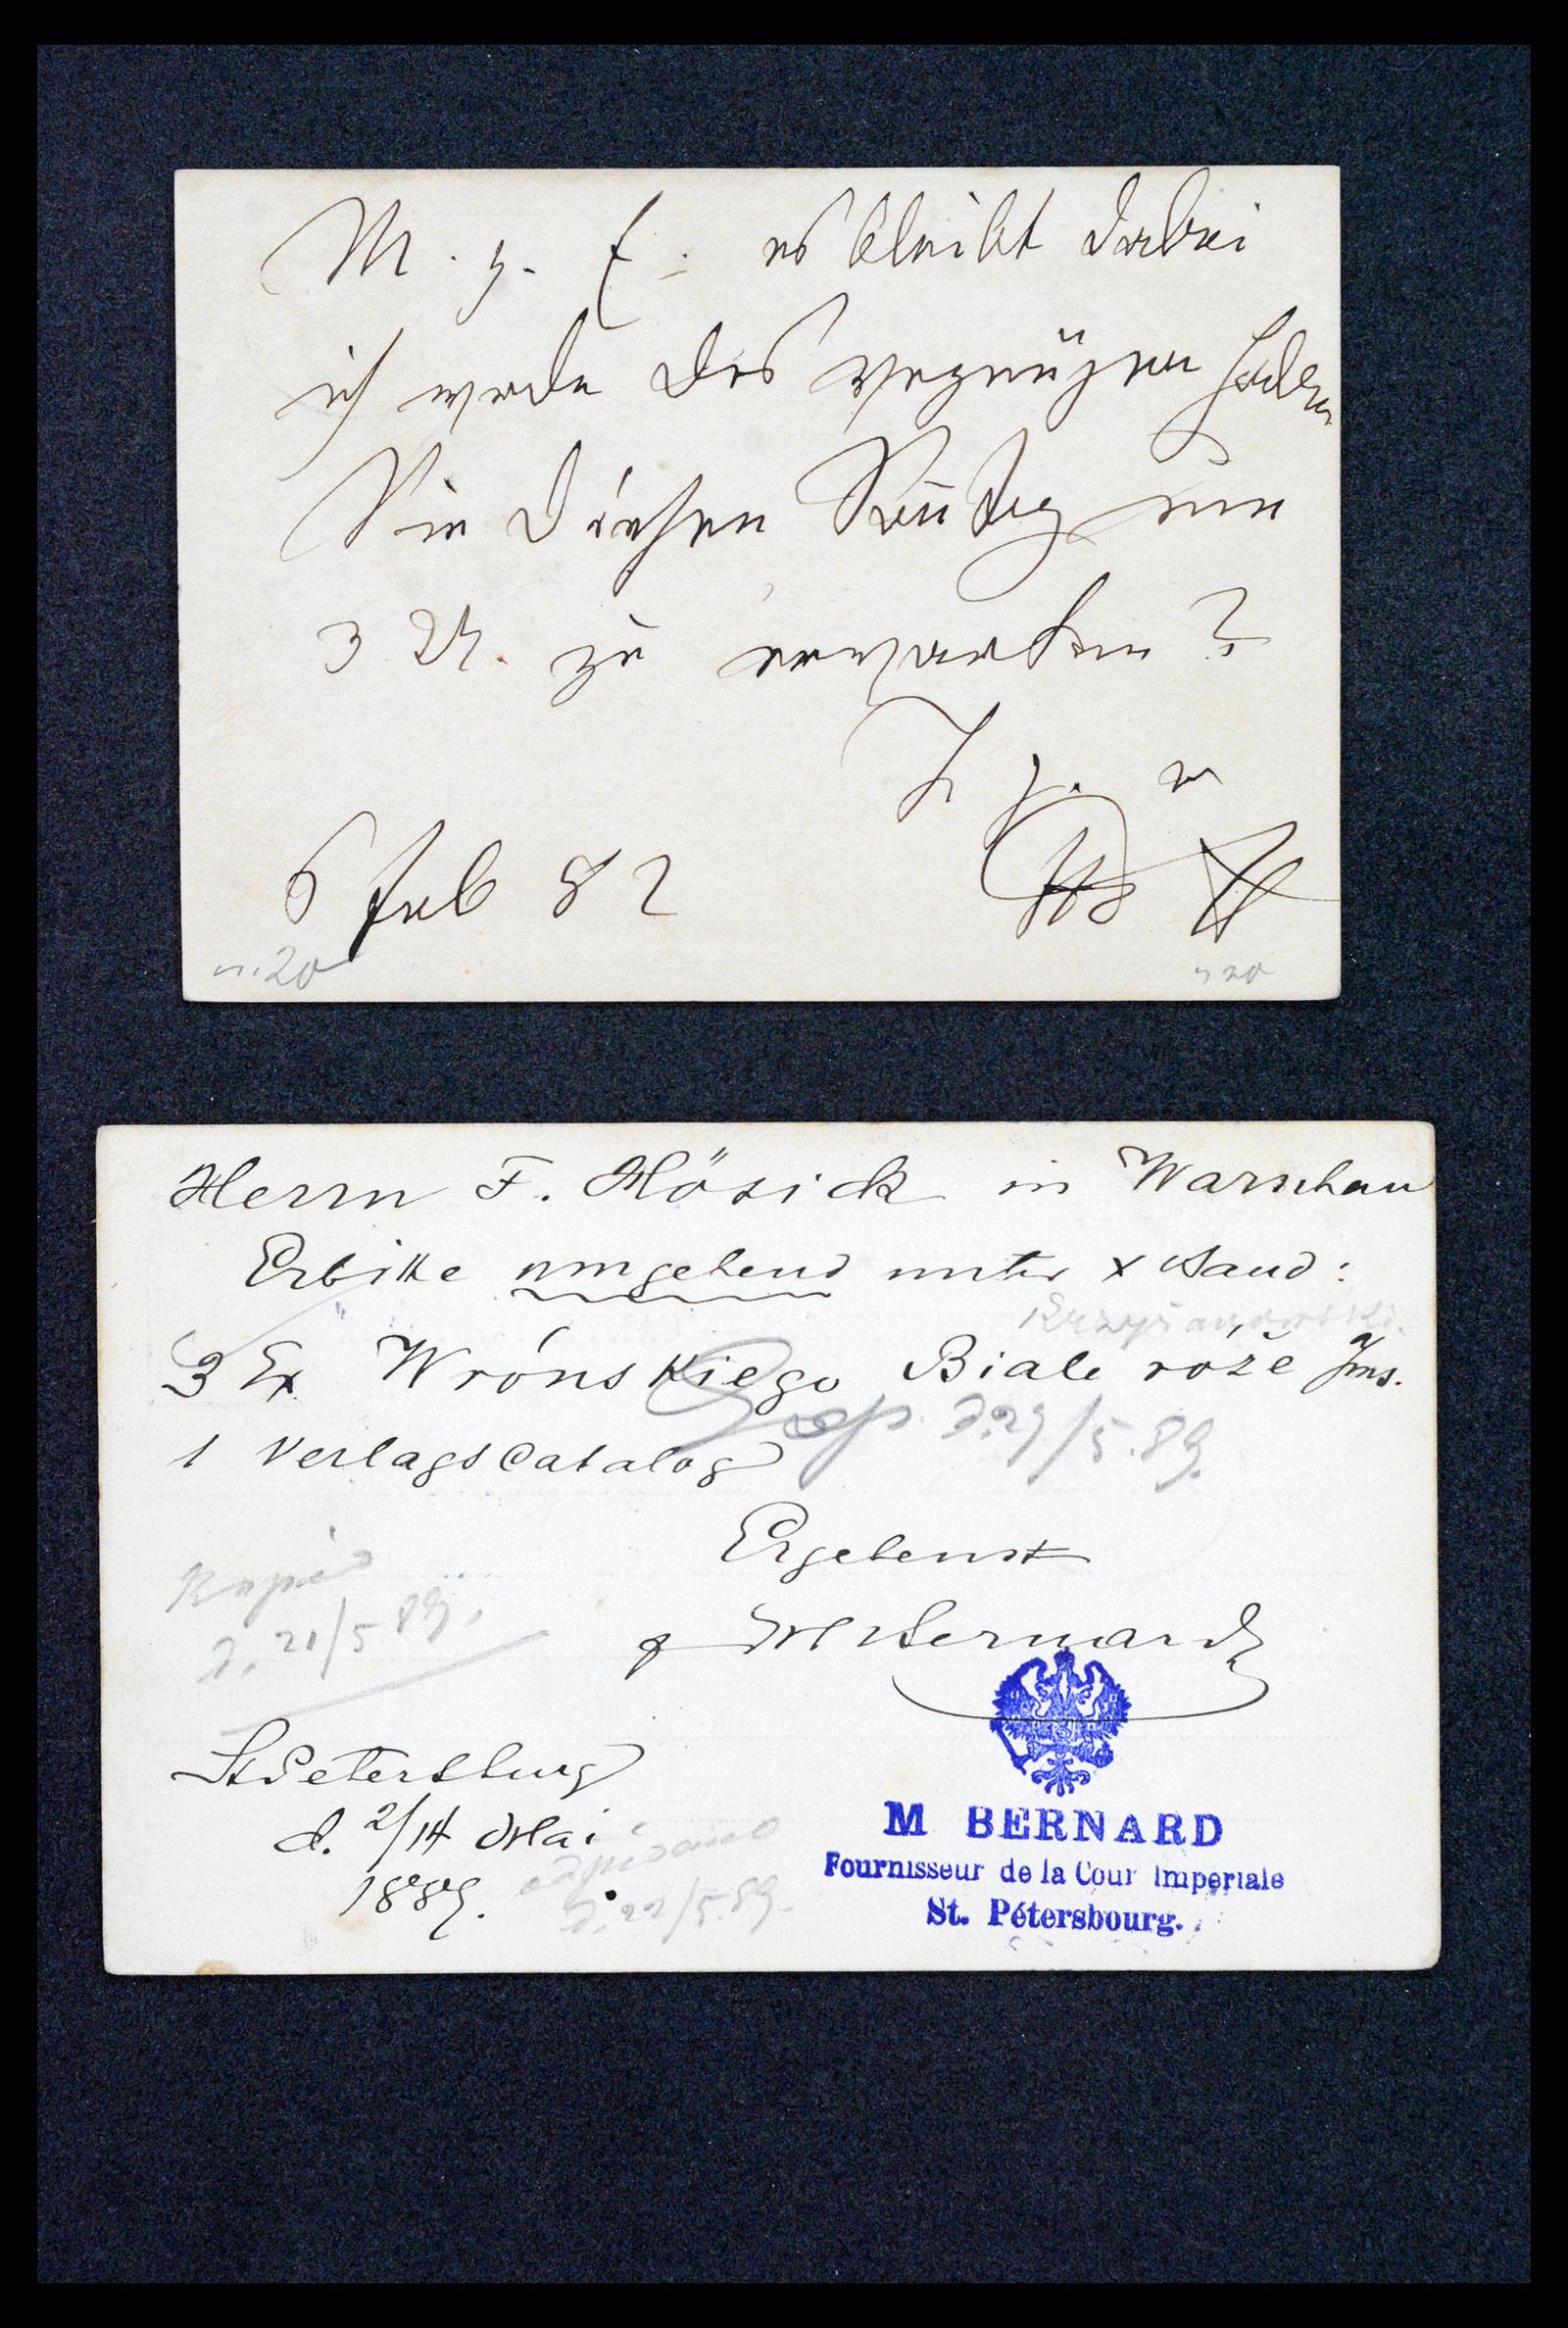 M. g. F. es bleibt dabei
ich werde das vergnügen haben
Sie diesen Sonntag um
3 U. zu erwarten?
6 Feb 82
n. 20
n 20
Herrn F. Hösick in Warschau
Erbitte umgehend unter x Band:
Krzyżanowski.
3 Ex Wrónskiego Biale róże Pfms.
1 Verlagscatalog
d. 29/5.89.
Ergebenst
Kopie
d. 21/5 89.
MBernard
St Petersburg
d. 2/14 Mai
1889.
odpisano
d. 22/5.89.
M BERNARD
Fournisseur de la Cour Imperiale
St. Pétersbourg.